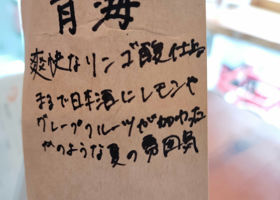 海
爽快なリンゴ酸仕込
まるで日本酒にレモンや
グレープフルーツが加わった
かのような夏の雰囲気